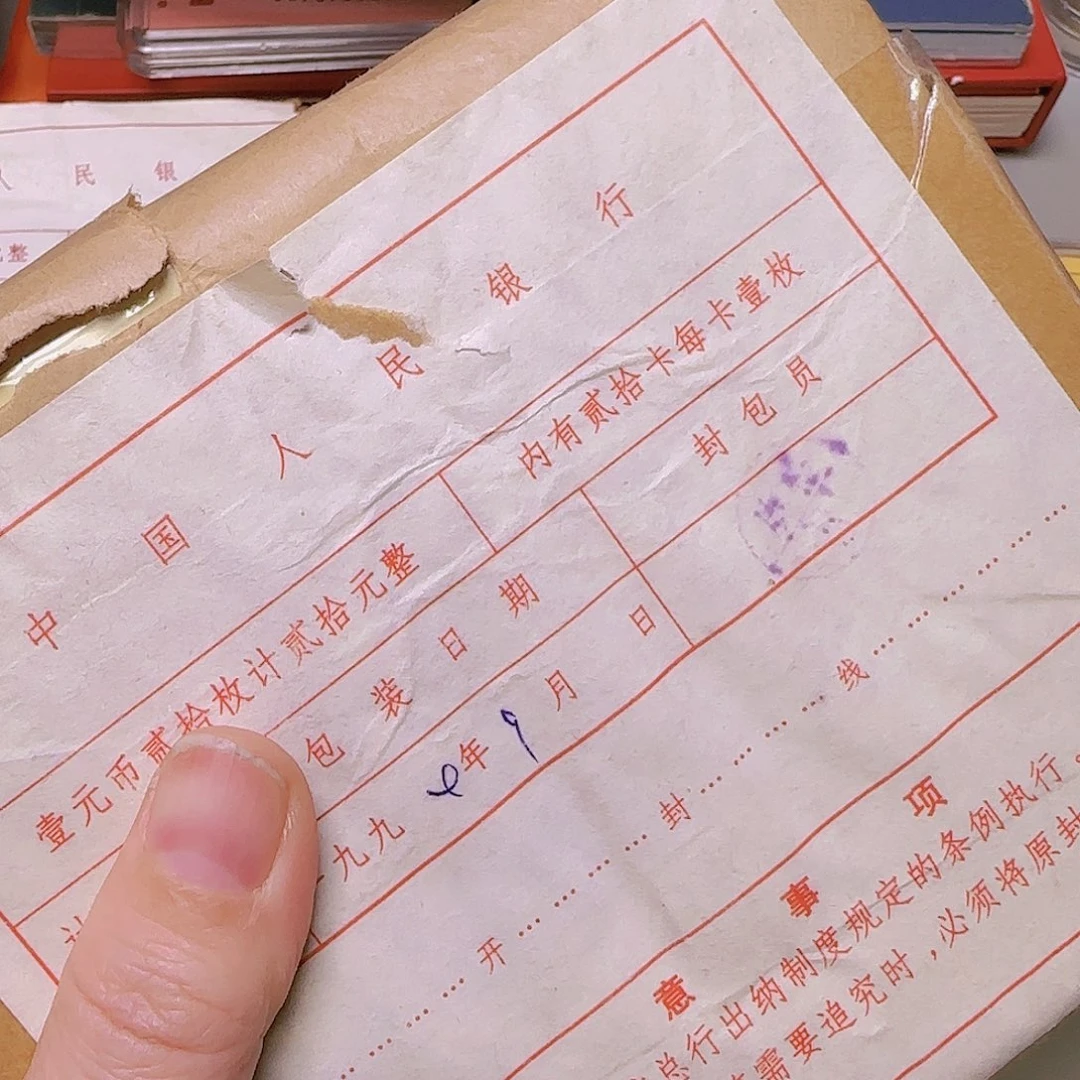 中国人民银行
壹元币贰拾枚计贰拾元整
内有贰拾卡每卡壹枚
包装日期
封包员
九九 年9月 日
开封线
意事项
总行出纳制度规定的条例执行。
需要追究时,必须将原封
民银
整